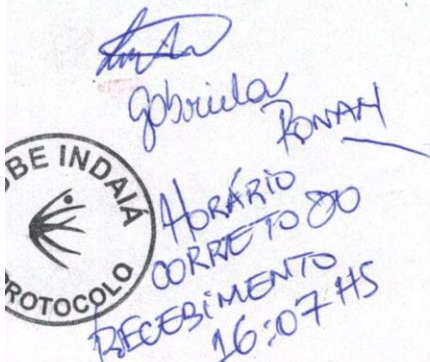 Gabriela
RONAN
UBE INDAIÁ
PROTOCOLO
HORÁRIO
CORRETO DO
RECEBIMENTO
16:07 HS